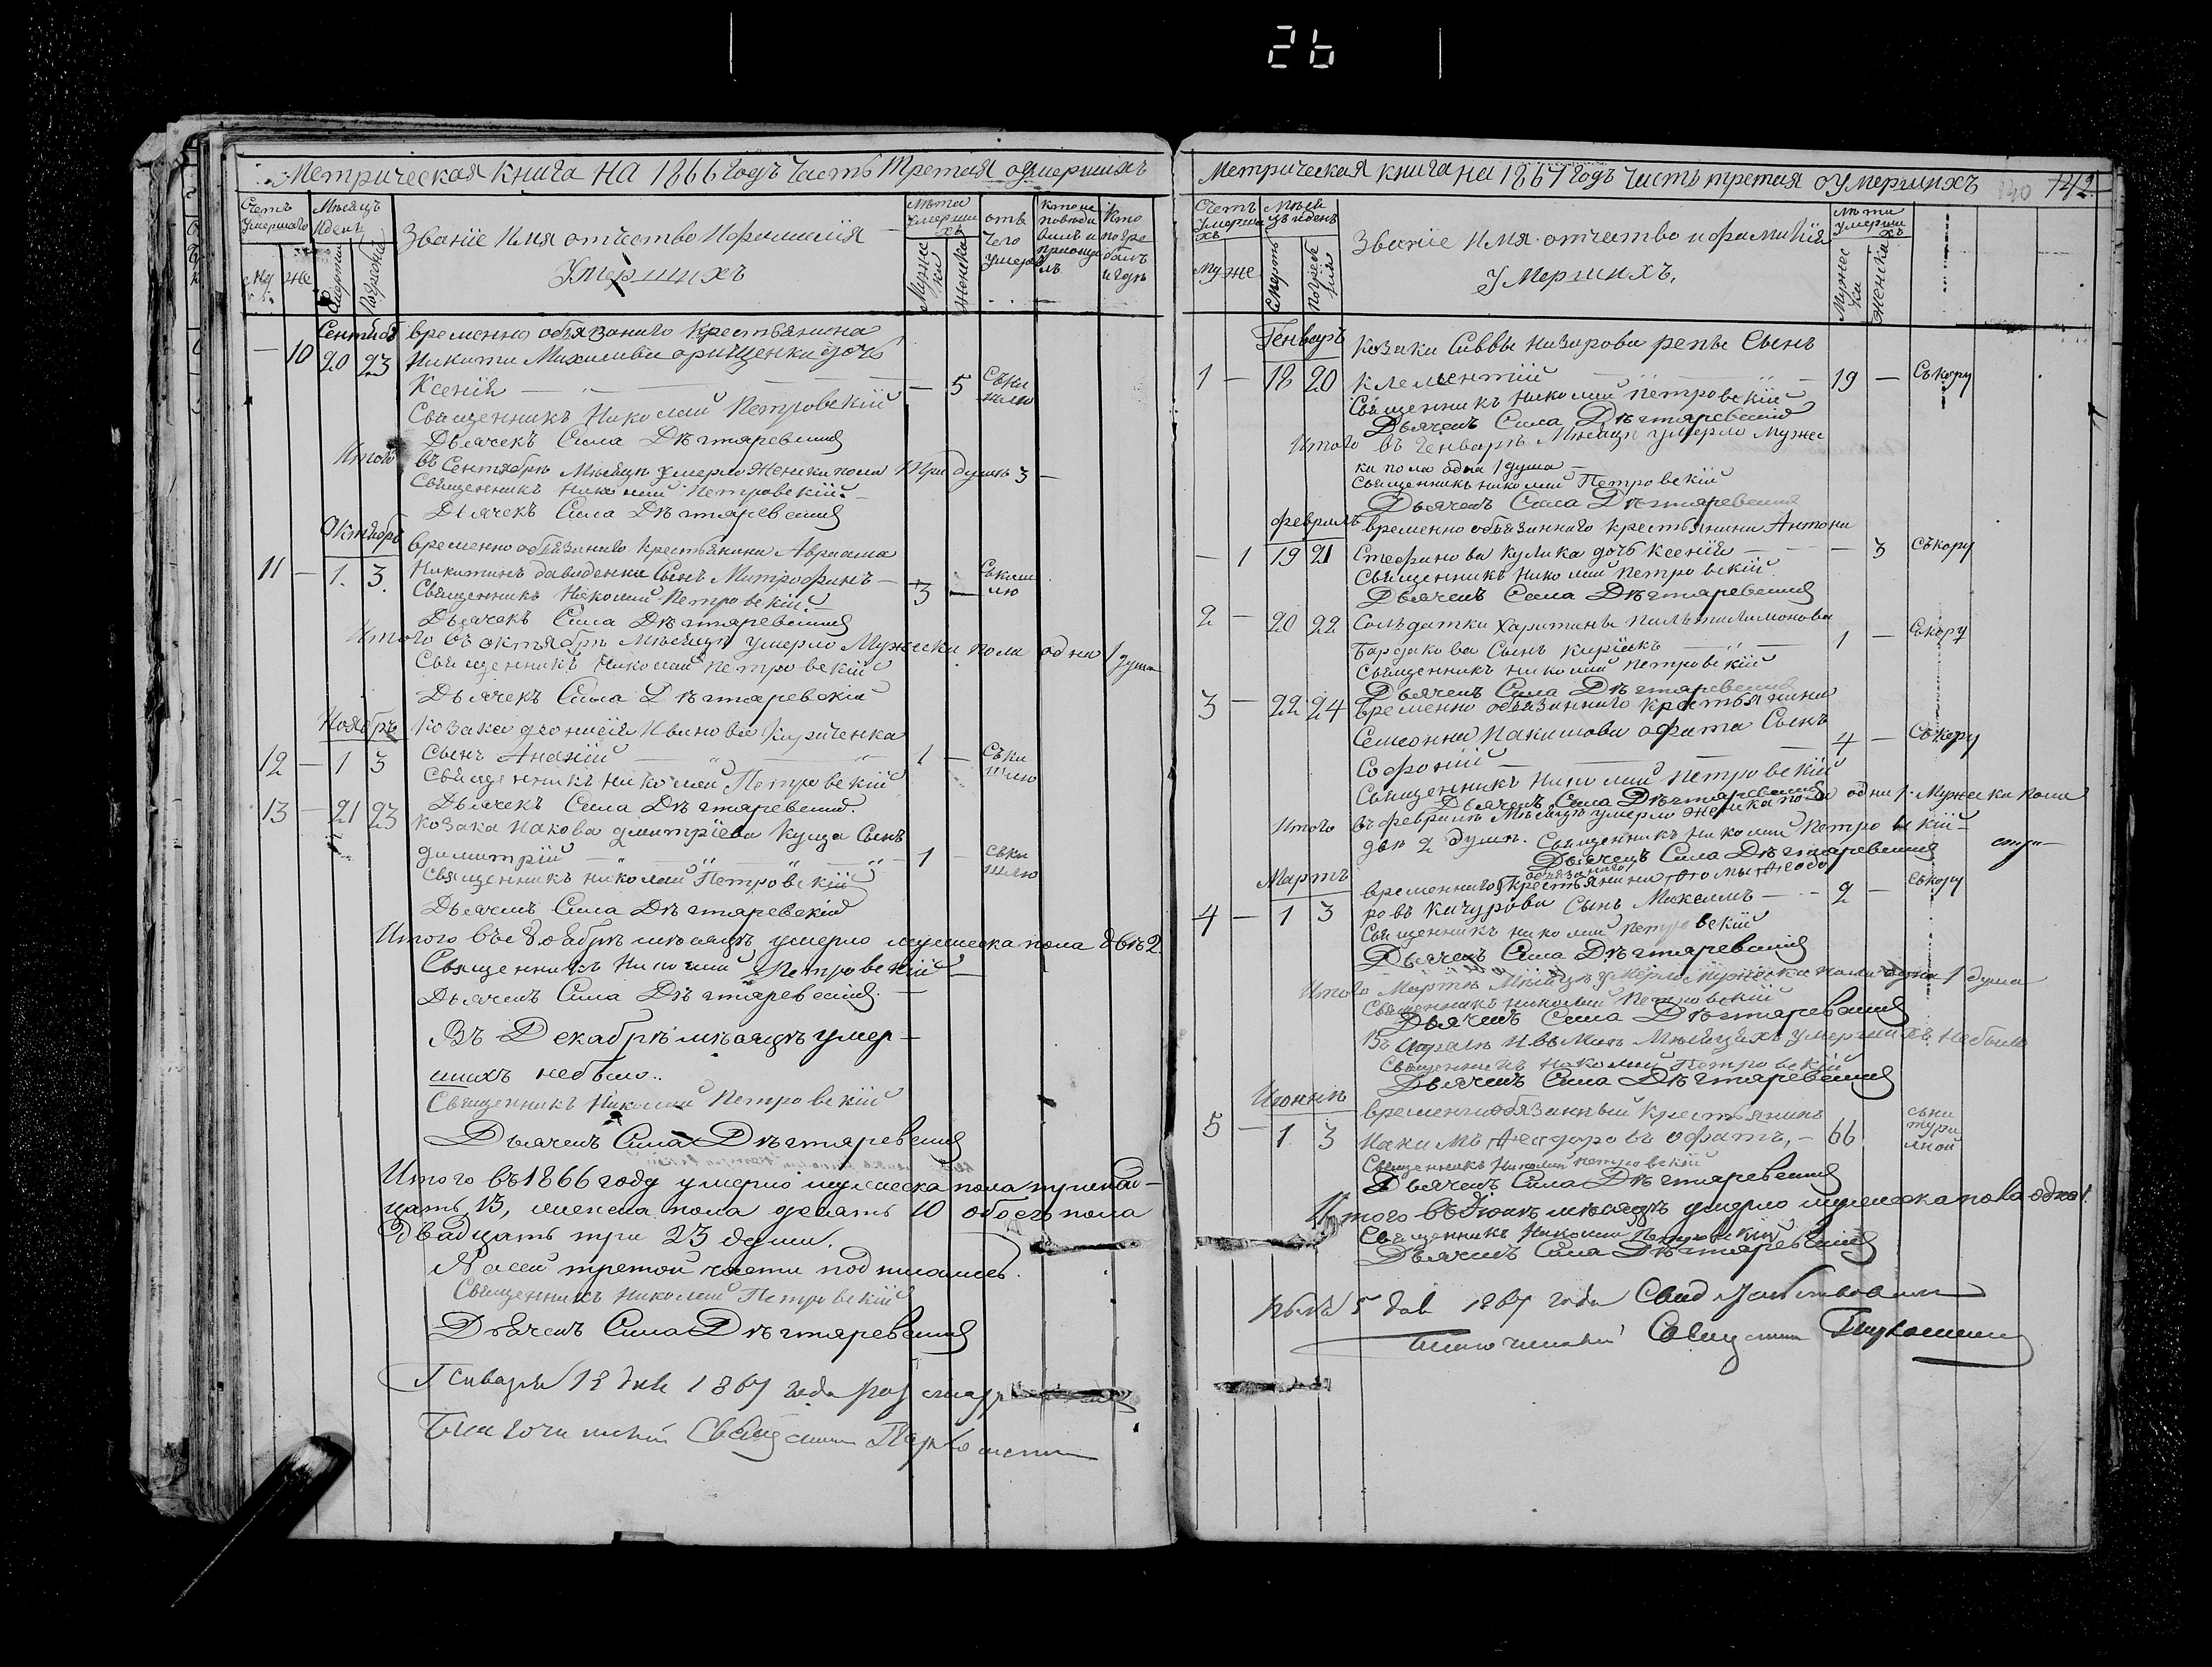 26
Метрическая книга на 1866 годъ часть третая о умершихъ
Счетъ умершаго
Мѣсяцъ и день
Звание имя отчество и фамилия
Умершихъ
Лѣта умерши хъ
отъ чего умеръ
кто погре балъ и гдѣ
Му же
Смерти
Погребения
Мужес ки
Женска
Сентябр временно обязаного крестьянина
10 20 23 Никити Михаилова орищенки дочь
Ксения — 5 Съки шлю
Священникъ Николай Петровский
Дьячекъ Сила Дѣгтяревский
Итого въ Сентябрѣ мѣсяцѣ умерло женска пола три душѣ 3 —
Священникъ Николай Петровский
Дьячекъ Сила Дѣгтяревский
Октябрь временно обязанаго крестьянина Авраама
11 — 1. 3. Никитинъ давиденки Сынъ Митрофанъ — 3 — Съкаш лю
Священникъ Николай Петровский
Дьячекъ Сила Дѣгтяревский
Итого въ октябрѣ мѣсяцѣ умерло Мужески пола одна 1 душа
Священникъ Николай Петровский
Дьячекъ Сила Дѣгтяревский
Ноябрь Козака Ивинова Кириченка
12 — 1 3 Сынъ Ананий 1 — Съки шлю
Священникъ Николай Петровский
Дьячекъ Сила Дѣгтяревский
13 — 21 23 Козака Иакова дмитриева Куща Сынъ
димитрий — 1 — Съки шлю
Священникъ Николай Петровский
Дьячекъ Сила Дѣгтяревский
Итого въ Ноябрѣ мѣсяцѣ умерло мужеска пола двѣ 2
Священникъ Николай Петровский
Дьячекъ Сила Дѣгтяревский
Въ Декабрѣ мѣсяцѣ умер-
шихъ небыло..
Священникъ Николай Петровский
Дьячекъ Сила Дѣгтяревский
Итого въ 1866 году умерло мужеска пола тринад-
цать 13, женска пола десать 10 обоего пола
Двадцать три 23 души.
К сей третой части подписались
Священникъ Николай Петровский
Дьячекъ Сила Дѣгтяревский
Генваря 12 дня 1867 года
Благочинный Священникъ
Метрическая книга на 1867 годъ часть третая о умершихъ 142
Счетъ умерша хъ
Мѣся цъ и день
Звание имя отчество и фамилия
Умершихъ,
Лѣта умерши хъ
Муже
Смерть
Погребе ния
Мужес ки
женска
Генварь Козаки Саввы Назарови репы Сынъ
1 — 18 20 Клементий 19 — Съкору
Священникъ Николай Петровский
Дьячекъ Сила Дѣгтяревский
Итого въ Генварѣ Мѣсяцѣ умерло Мужес
ки пола одна 1 душа —
Священникъ Николай Петровский
Дьячекъ Сила Дѣгтяревский
февраль временно обязанного крестьянина Антони
— 1 19 21 Стефанова Кулика дочь Ксения — 3 Съкору
Священникъ Николай Петровский
Дьячекъ Сила Дѣгтяревский
2 — 20 22 Солъдатки Харитины
Бардакова Сынъ Кириакъ 1 — Съкору
Священникъ Николай Петровский
Дьячекъ Сила Дѣгтяревский
3 — 22 24 временно обязанного крестьянина
Симеонна Иакимови офата Сынъ
Софоний 4 — Съкору
Священникъ Николай Петровский
Дьячекъ Сила Дѣгтяревский
Итого въ февралѣ Мѣсяцѣ умерло женска пола одни 1. Мужеска пола
двѣ 2 душѣ. Священникъ Николай Петровский
Дьячекъ Сила Дѣгтяревский
Мартъ временнаго обязаного крестьянина Фомы Феодо
4 — 1 3 ровъ Качурова Сынъ Максимъ 2 — Съкору
Священникъ Николай Петровский
Дьячекъ Сила Дѣгтяревский
Итого Мартѣ Мѣсяцѣ умерло Мужески пола одна 1 душа
Священникъ Николай Петровский
Дьячекъ Сила Дѣгтяревский
Въ Апрелѣ и въ Маѣ Мѣсяцяхъ умершихъ небыло
Священникъ Николай Петровский
Дьячекъ Сила Дѣгтяревский
Июннь временнообязанный крестьянинъ
5 — 1. 3 Иакимъ Феодоровъ офатъ, — 66
Священникъ Николай Петровский
Дьячекъ Сила Дѣгтяревский
Итого въ Июнѣ мѣсяцѣ умерло мужеска пола одна 1.
Священникъ Николай Петровский
Дьячекъ Сила Дѣгтяревский
5 1867 года
Благочинный